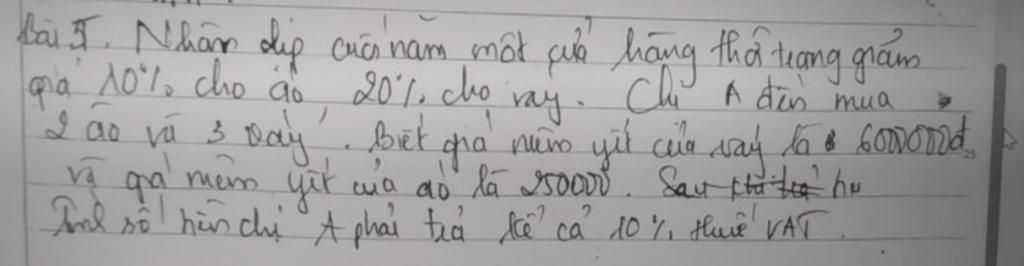 Bài 5. Nhân dịp cuối năm một cửa hàng thời trang giảm
giá 10% cho áo 20% cho váy. Chị A đến mua
2 áo và 3 váy. Biết giá niêm yết của váy là 600000đ
và giá niêm yết của áo là 250000. Sau khi trả hế
Tính số tiền chị A phải trả kể cả 10% thuế VAT.